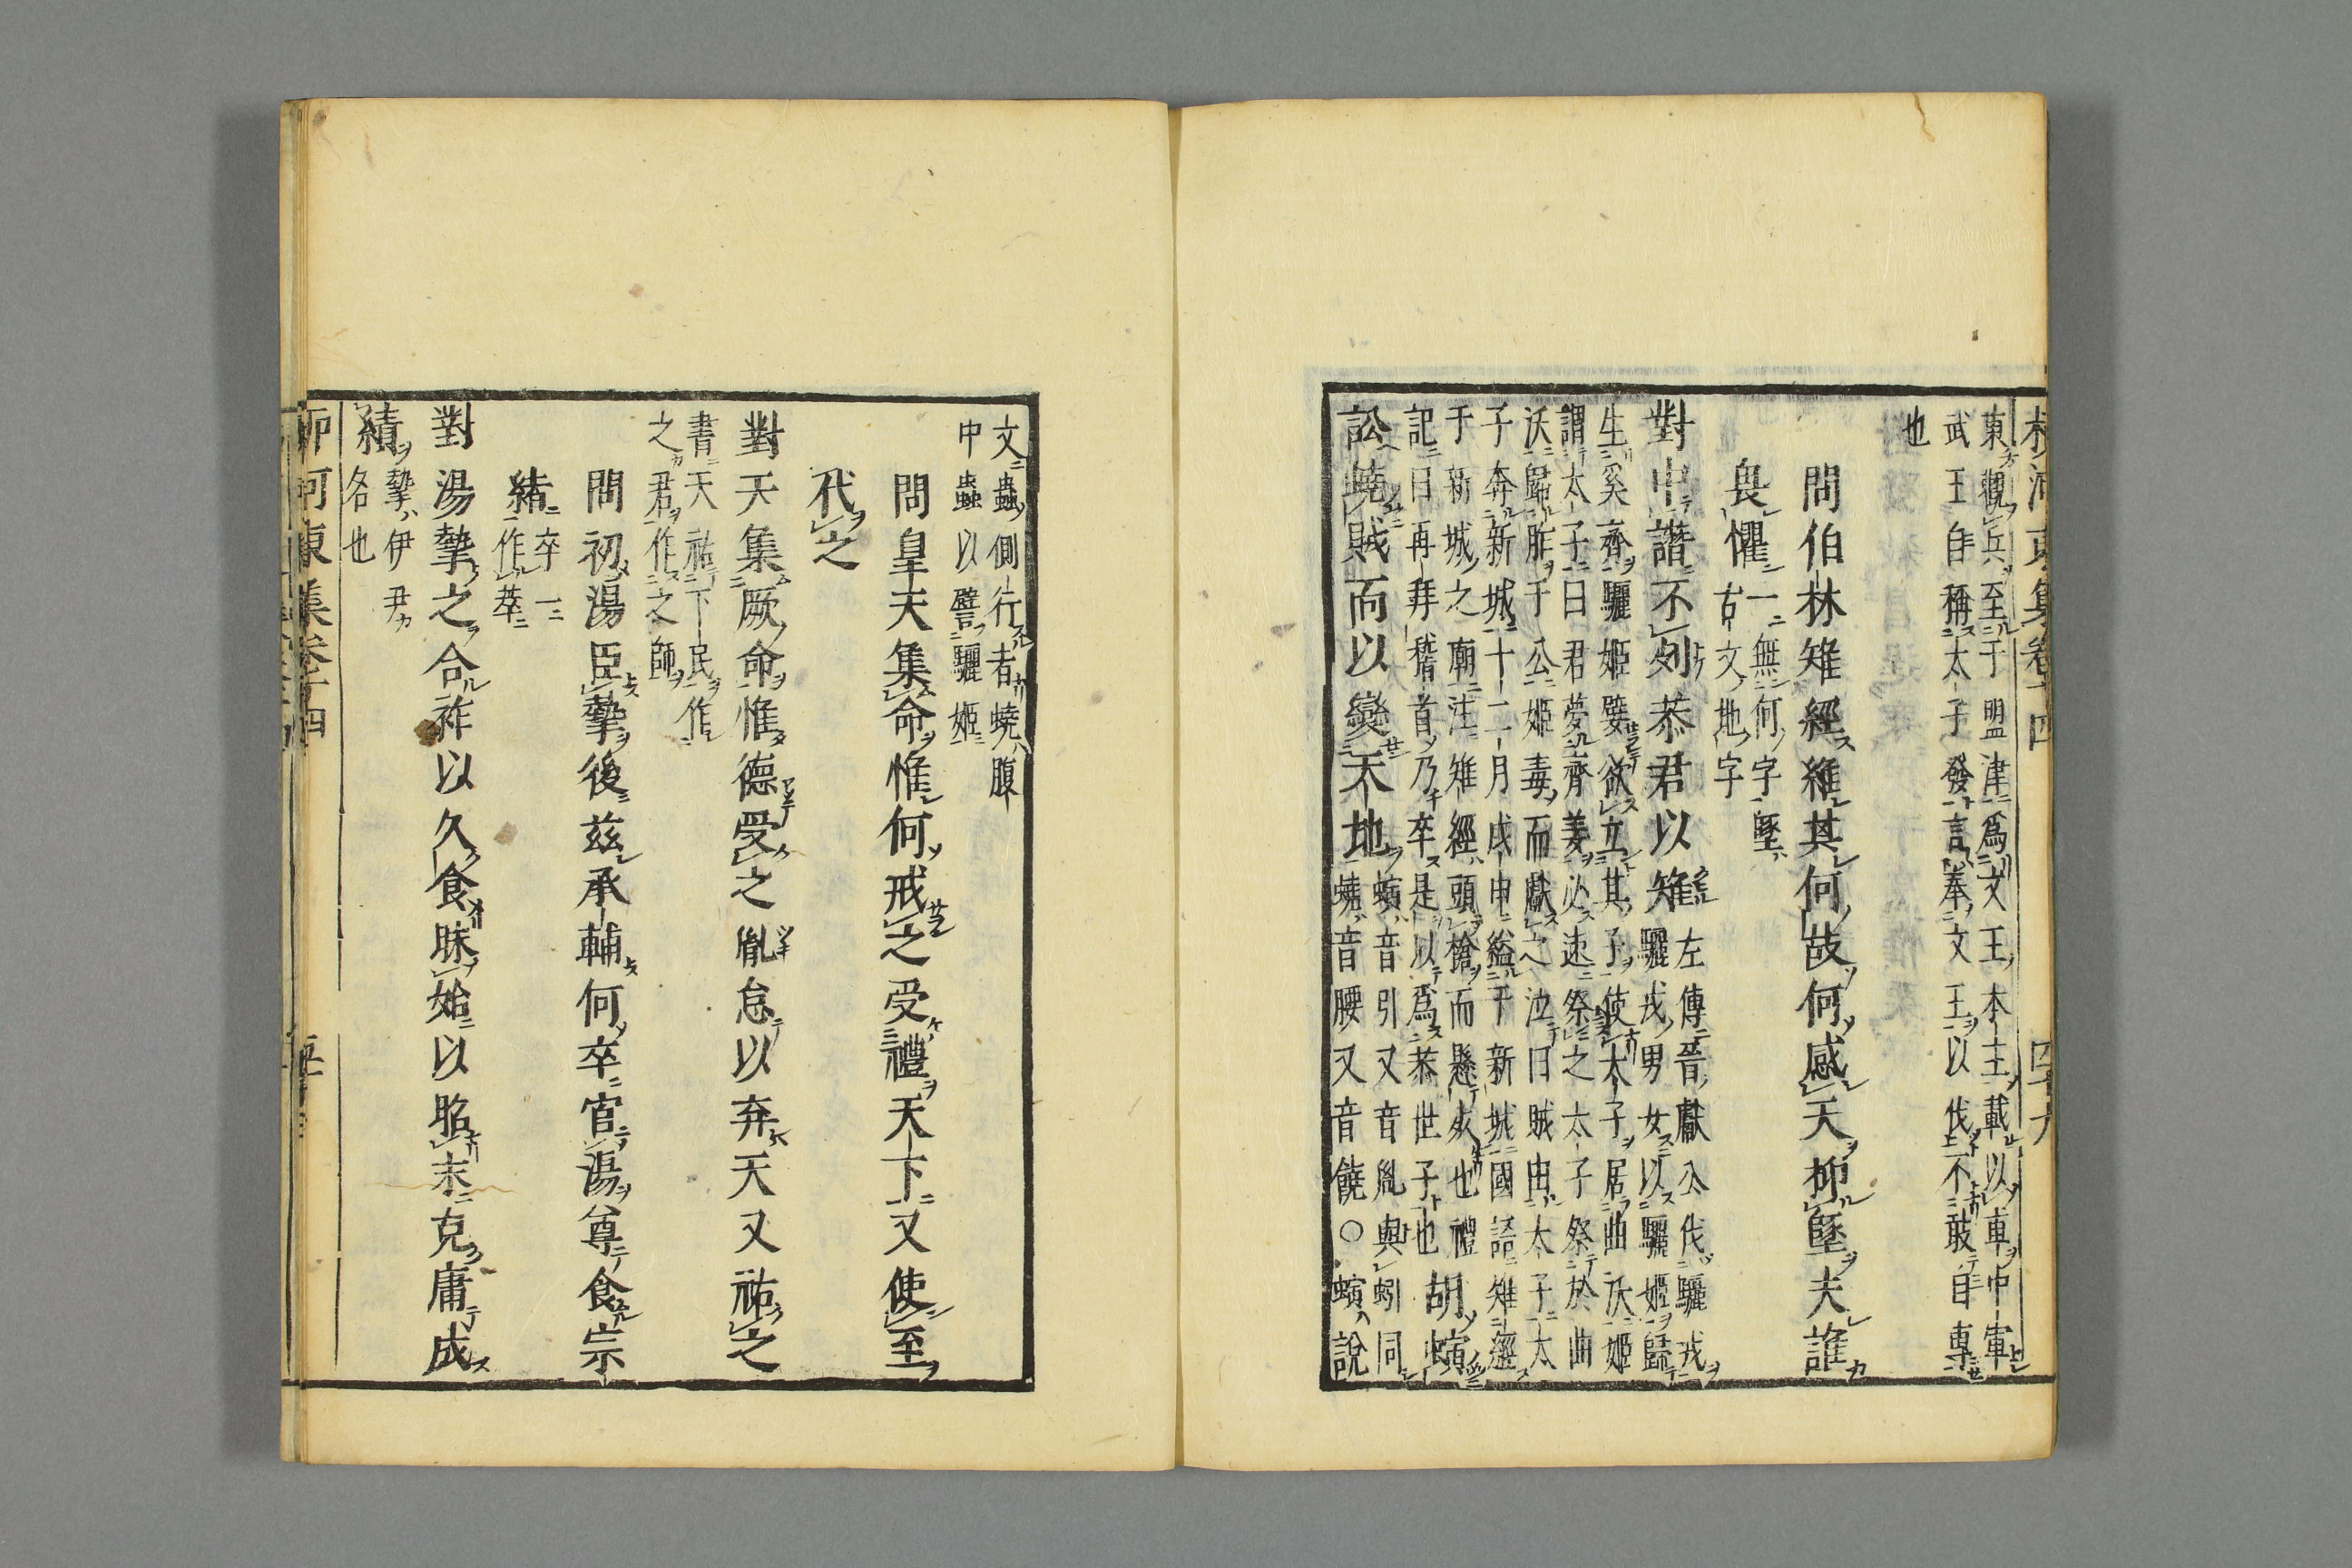 柳河東集卷十四 四十九
東觀兵至于盟津爲文王木主載以車中軍
武王自稱太子發言奉文王以伐不敢自專
也
問伯林雉經維其何故何感天抑墜夫誰
畏懼一無何字墜
古文地字
對中譖不列恭君以雉左傳晉獻公伐驪戎
驪戎男女以驪姬歸
生奚齊驪姬嬖欲立其子使太子居曲沃姬
謂太子曰君夢齊姜必速祭之太子祭於曲
沃歸胙于公姬毒而獻之泣曰賊由太子太
子奔新城十二月戊申縊于新城國語雉經
于新城之廟注雉經頭槍而懸死也禮
記曰再拜稽首乃卒是以爲恭世子也胡螾
訟蟯賊而以變天地螾音引又音胤與蚓同
蟯音腰又音饒○螾說
文蟲側行者蟯腹
中蟲以譬驪姬
問皇天集命惟何戒之受禮天下又使至
代之
對天集厥命惟德受之胤怠以弃天又祐之
書天祐下民作
之君作之師
問初湯臣摯後兹承輔何卒官湯尊食宗
緖卒一
作萃
對湯摯之合祚以久食昧始以昭末克庸成
績摯伊尹
名也
柳河東集卷十四